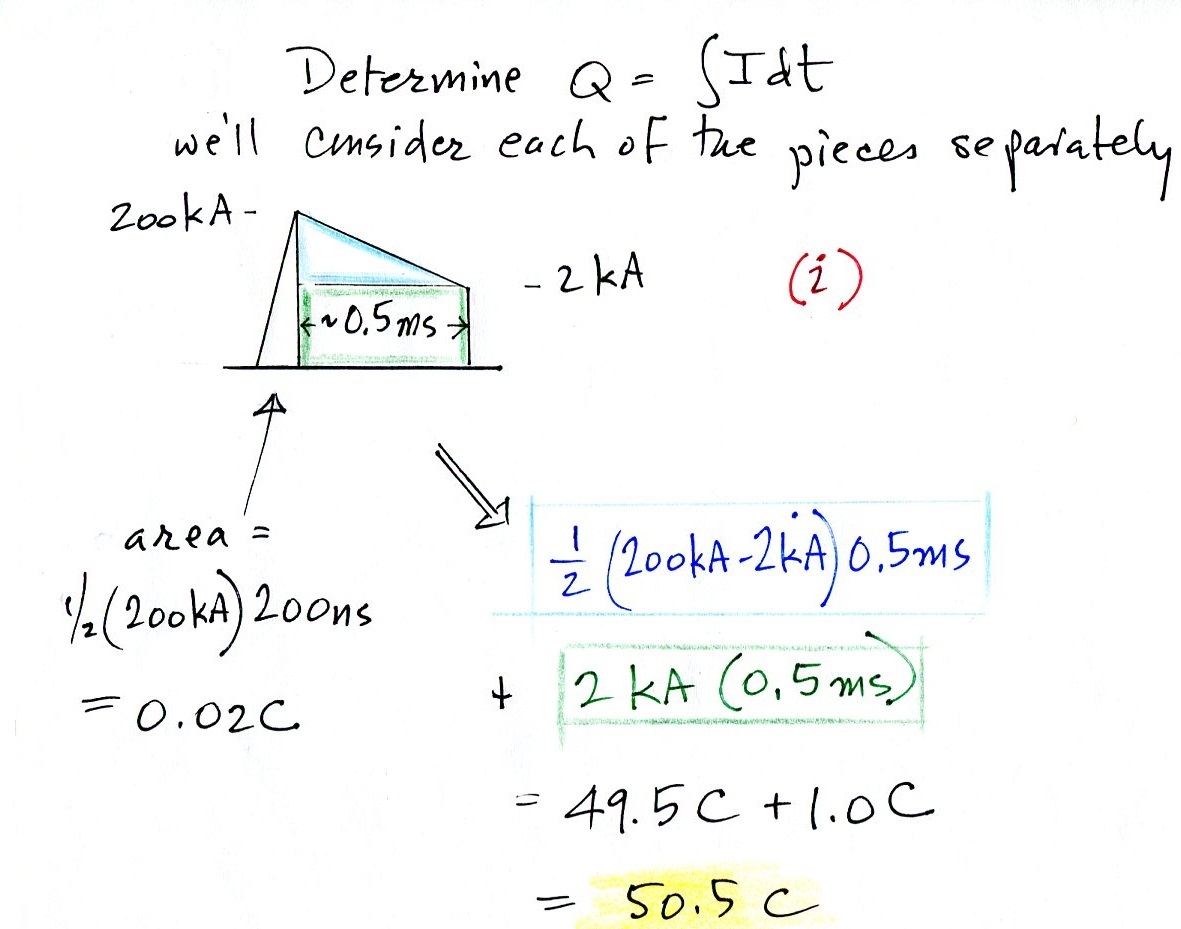 Determine Q = ∫Idt
we'll consider each of the pieces separately
200kA -
- 2 kA
(i)
~0.5ms
area =
1/2(200kA)200ns
= 0.02C
1/2 (200kA-2kA) 0.5ms
+ 2 kA (0.5ms)
= 49.5C + 1.0C
= 50.5 C